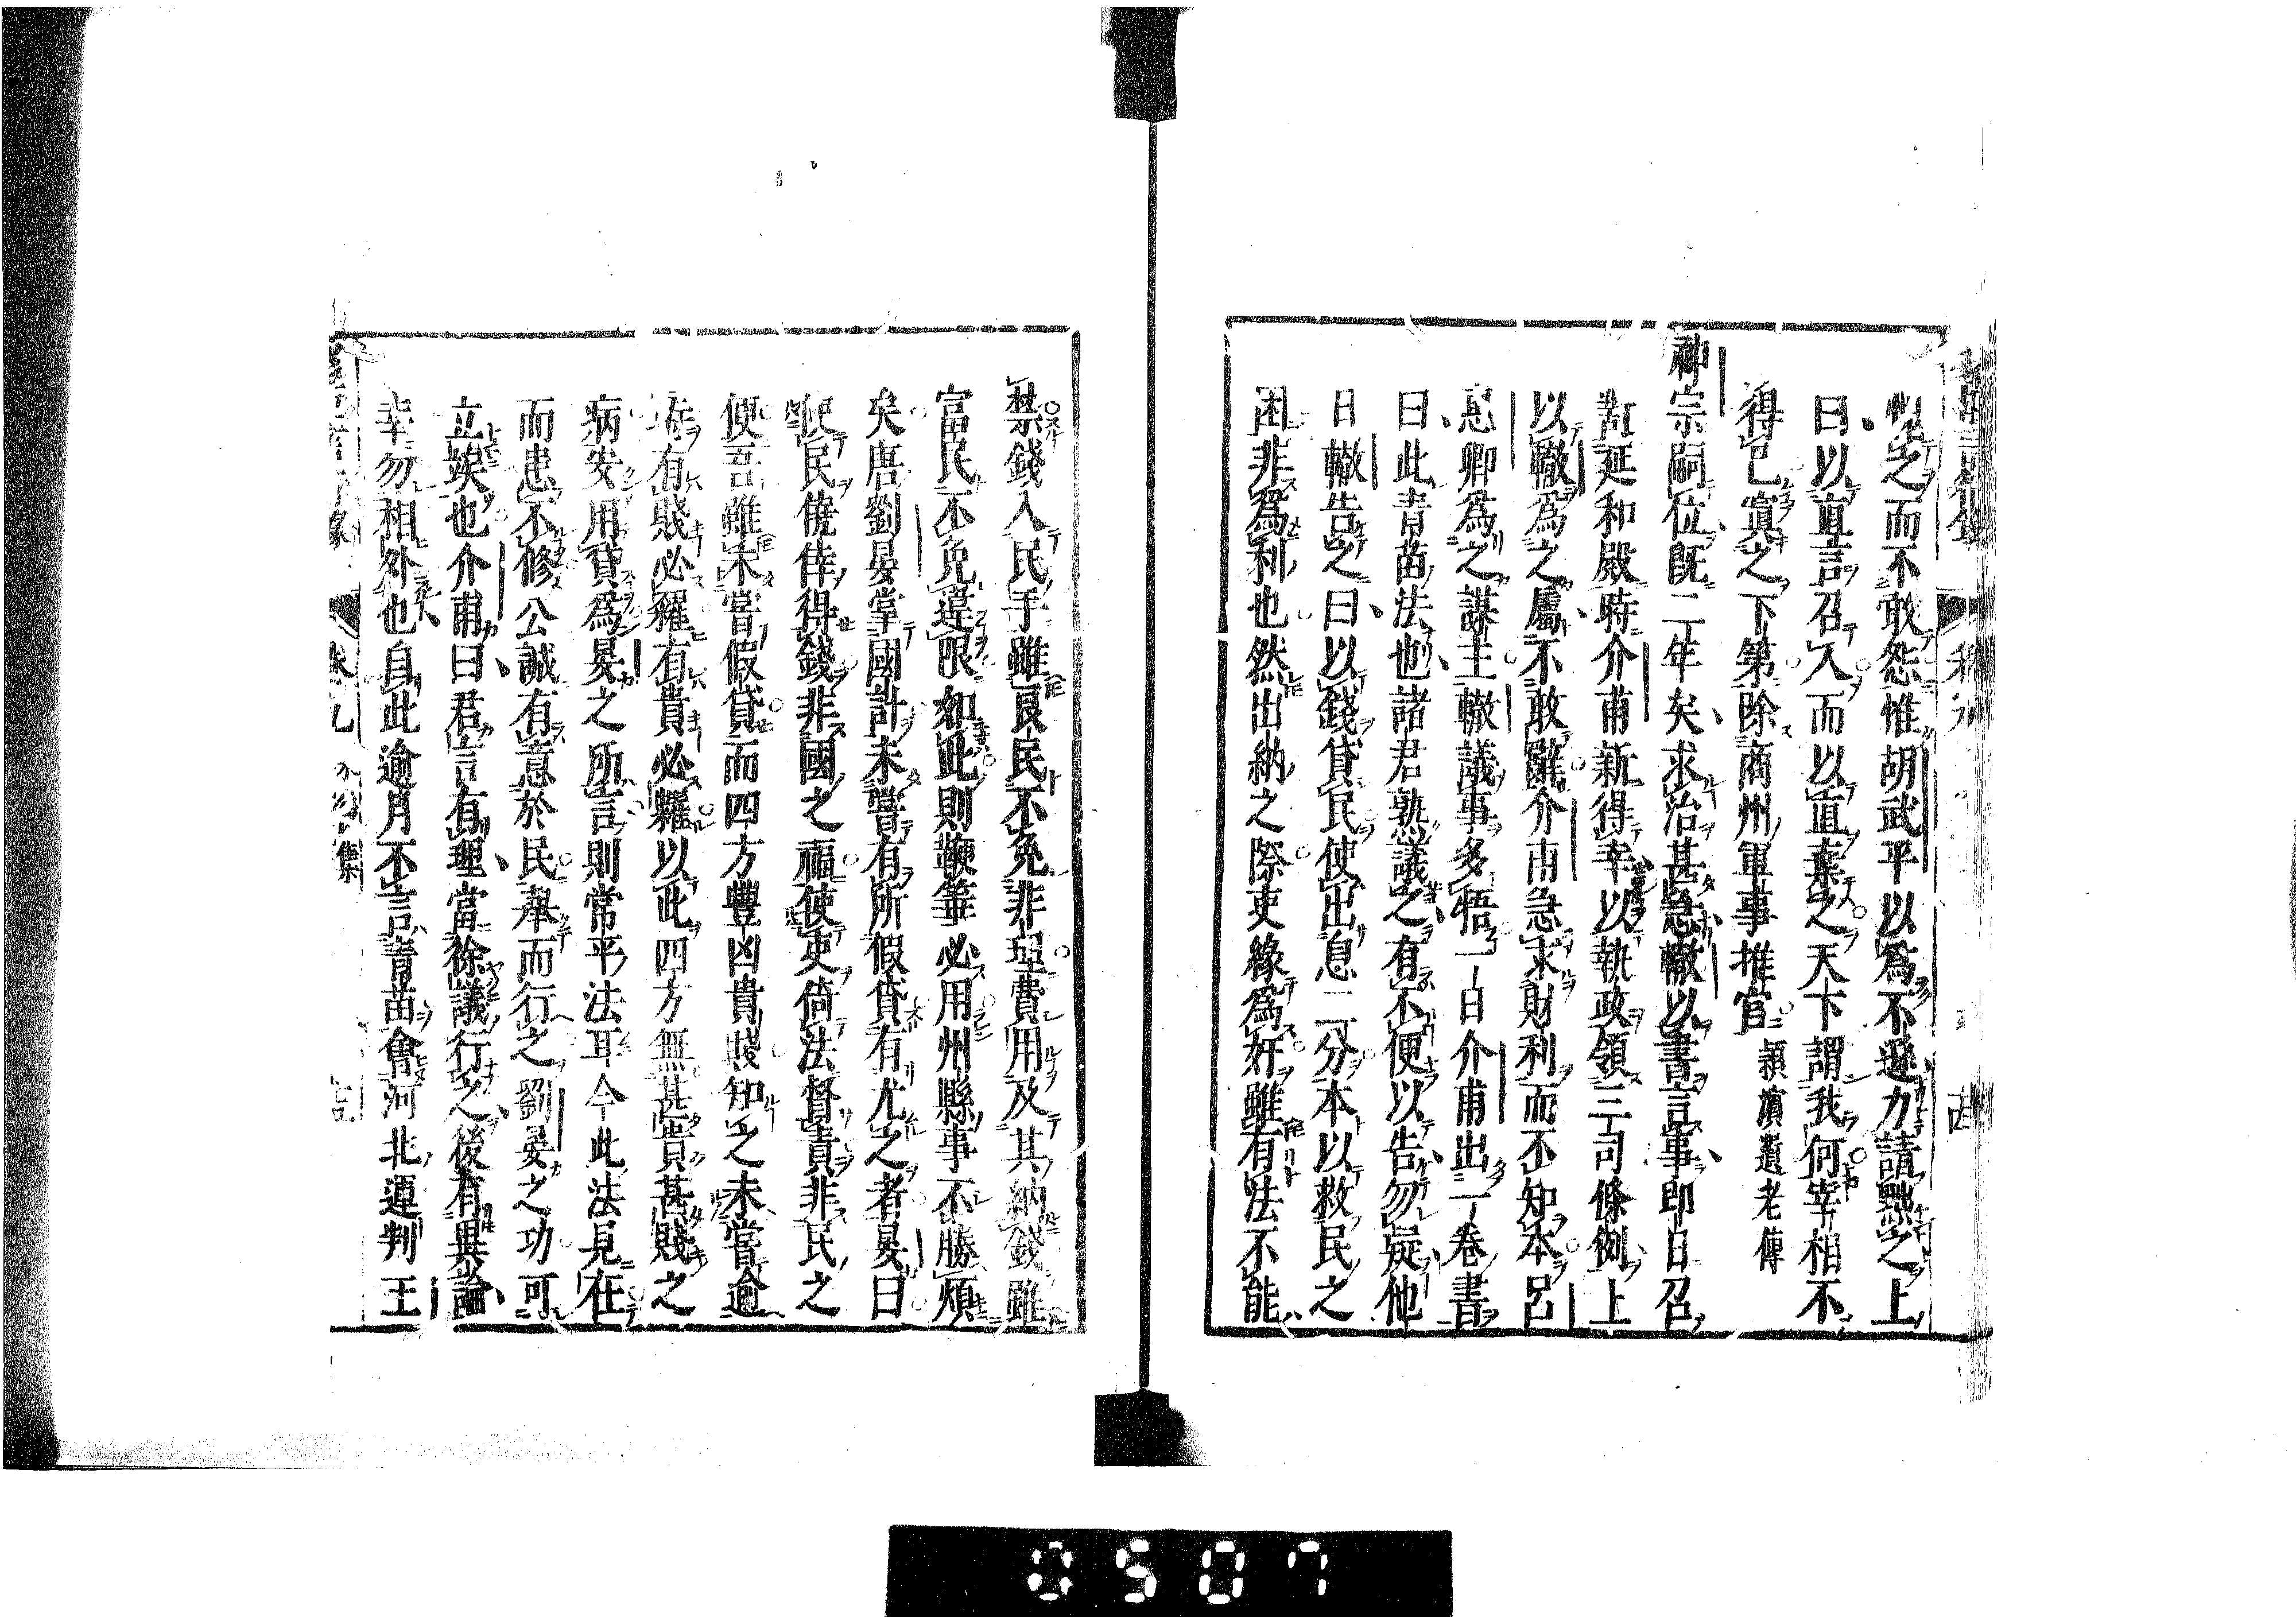 愧之而不敢怨惟胡武平以爲不遜力請黜之上
曰以直言召人而以直棄之天下謂我何宰相不
得已寘之下第除商州軍事推官 潁濱遺老傳
神宗嗣位既二年矣求治甚急轍以書言事即日召
對延和殿時介甫新得幸以執政領三司條例上
以轍爲之屬不敢辭介甫急求財利而不知本呂
惠卿爲之謀主轍議事多牾一日介甫出一卷書
曰此青苗法也諸君熟議之有不便以告勿疑他
日轍告之曰以錢貸民使出息二分本以救民之
困非爲利也然出納之際吏緣爲奸雖有法不能
禁錢入民手雖良民不免非理費用及其納錢雖
富民不免違限如此則鞭箠必用州縣事不勝煩
矣唐劉晏掌國計未嘗有所假貸有尤之者晏曰
使民僥倖得錢非國之福使吏倚法督責非民之
便吾雖未嘗假貸而四方豐凶貴賤知之未嘗逾
時有賤必糴有貴必糶以此四方無甚貴甚賤之
病安用貸爲晏之所言則常平法耳今此法見在
而患不修公誠有意於民舉而行之劉晏之功可
立竢也介甫曰君言有理當徐議行之後有異論
幸勿相外也自此逾月不言青苗會河北運判王
卷九
集